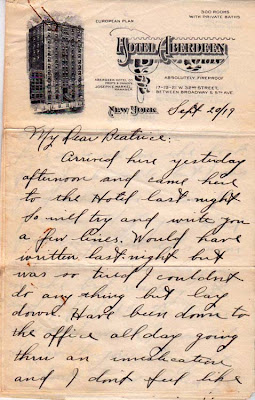 EUROPEAN PLAN
500 ROOMS
WITH PRIVATE BATHS
HOTEL ABERDEEN
ABSOLUTELY FIREPROOF
17-19-21 W. 32ND STREET,
BETWEEN BROADWAY & 5TH AVE.
ABERDEEN HOTEL CO.
NEW YORK
Sept 20/19
My Dear Beatrice:
Arrived here yesterday
afternoon and came here
to the Hotel last night
So will try and write you
a few lines. Would have
written last night but
was so tired I couldnt
do any thing but lay
down. Have been down to
the office all day going
thru an investigation
and I dont feel like